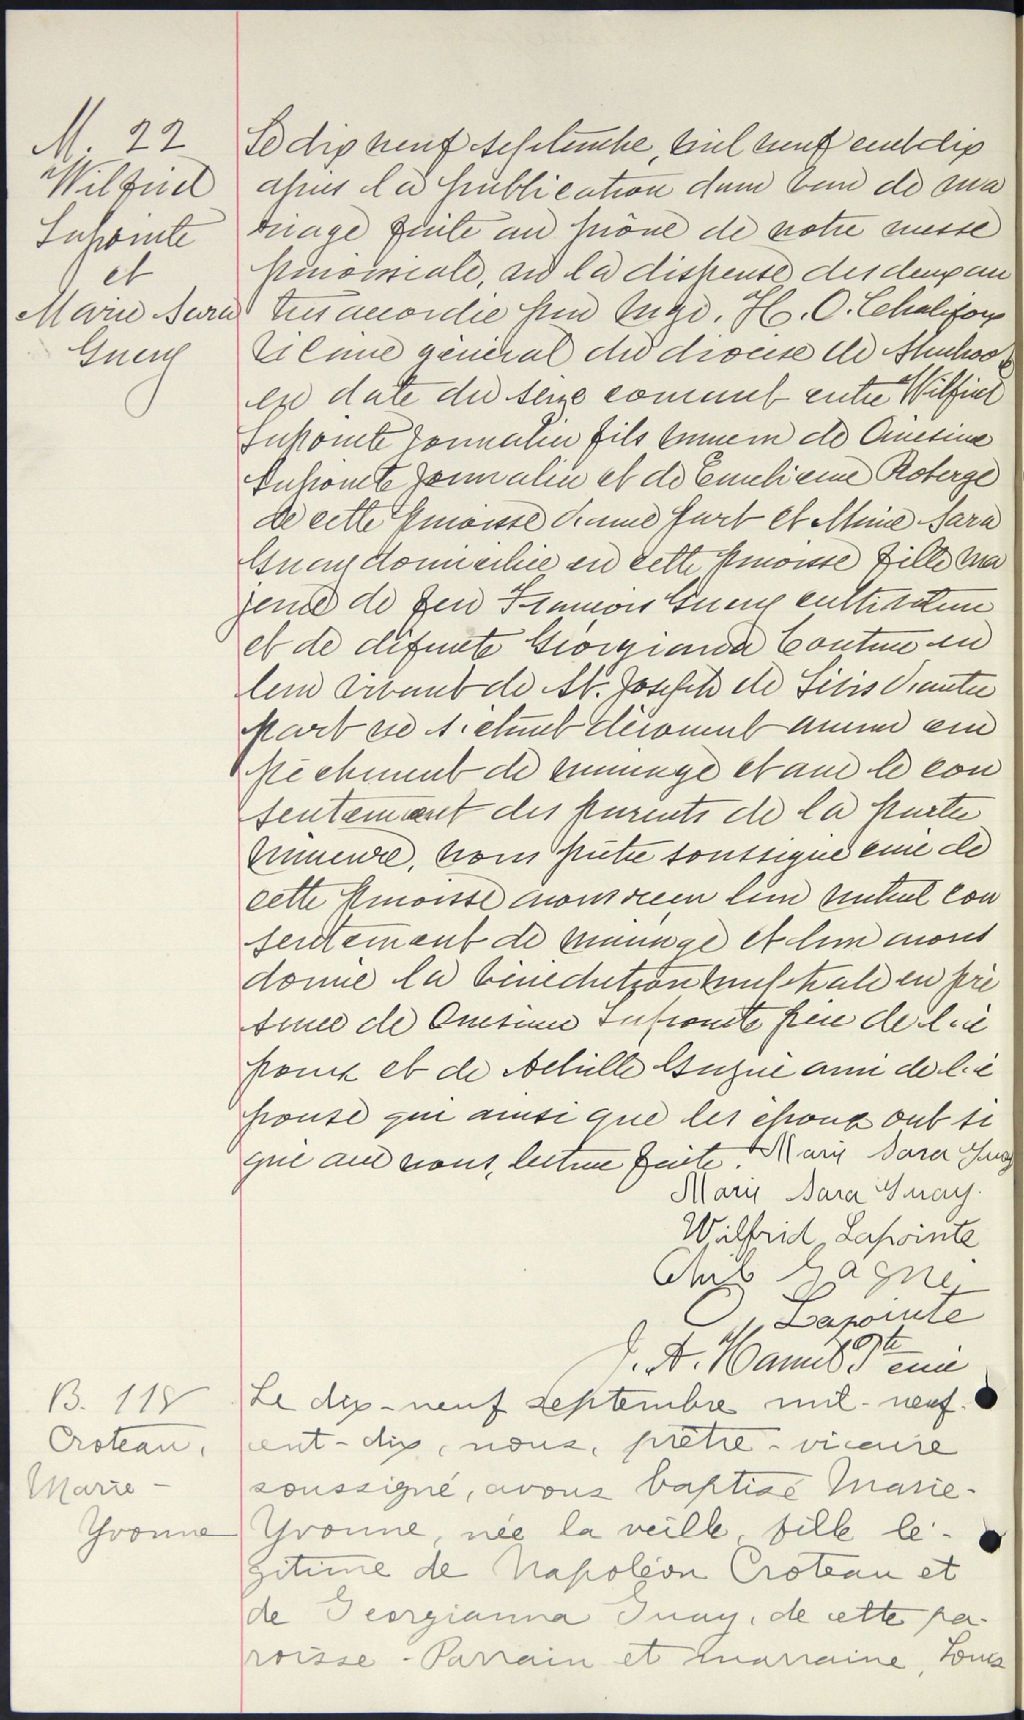 M. 22
Wilfrid
Lapointe
et
Marie Sara
Guay
Le dix neuf septembre, mil neuf cent dix
après la publication d'un ban de ma
riage faite au prône de notre messe
paroissiale, vu la dispense des deux au
tres accordée par Mgr. H. O. Chalifoux
Vicaire général du diocèse de Sherbrooke
en date du seize courant entre Wilfrid
Lapointe journalier fils mineur de Onésime
Lapointe journalier et de Emelienne Roberge
de cette paroisse d'une part et Marie Sara
Guay domiciliée en cette paroisse fille ma
jeure de feu François Guay cultivateur
et de défunte Géorgianna Couture en
leur vivant de St. Joseph de Lévis d'autre
part ne s'étant découvert aucun em
pêchement de mariage et avec le con
sentement des parents de la partie
mineure, nous prêtre soussigné curé de
cette paroisse avons reçu leur mutuel con
sentement de mariage et leur avons
donné la bénédiction nuptiale en pré
sence de Onésime Lapointe père de l'é
poux et de Achille Gagné ami de l'é
pouse qui ainsi que les époux ont si
gné avec nous, lecture faite. Marie Sara Guay
Marie Sara Guay.
Wilfrid Lapointe
Gagné
O. Lapointe
J. A. Hamel Ptr curé
B. 118
Croteau,
Marie-
Yvonne
Le dix-neuf septembre mil-neuf-
cent-dix, nous, prêtre-vicaire
soussigné, avons baptisé Marie-
Yvonne, née la veille, fille lé-
gitime de Napoléon Croteau et
de Georgianna Guay, de cette pa-
roisse - Parrain et marraine, Louis